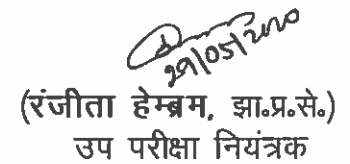 29/05/2020
(रंजीता हेम्ब्रम, झा॰प्र॰से॰)
उप परीक्षा नियंत्रक